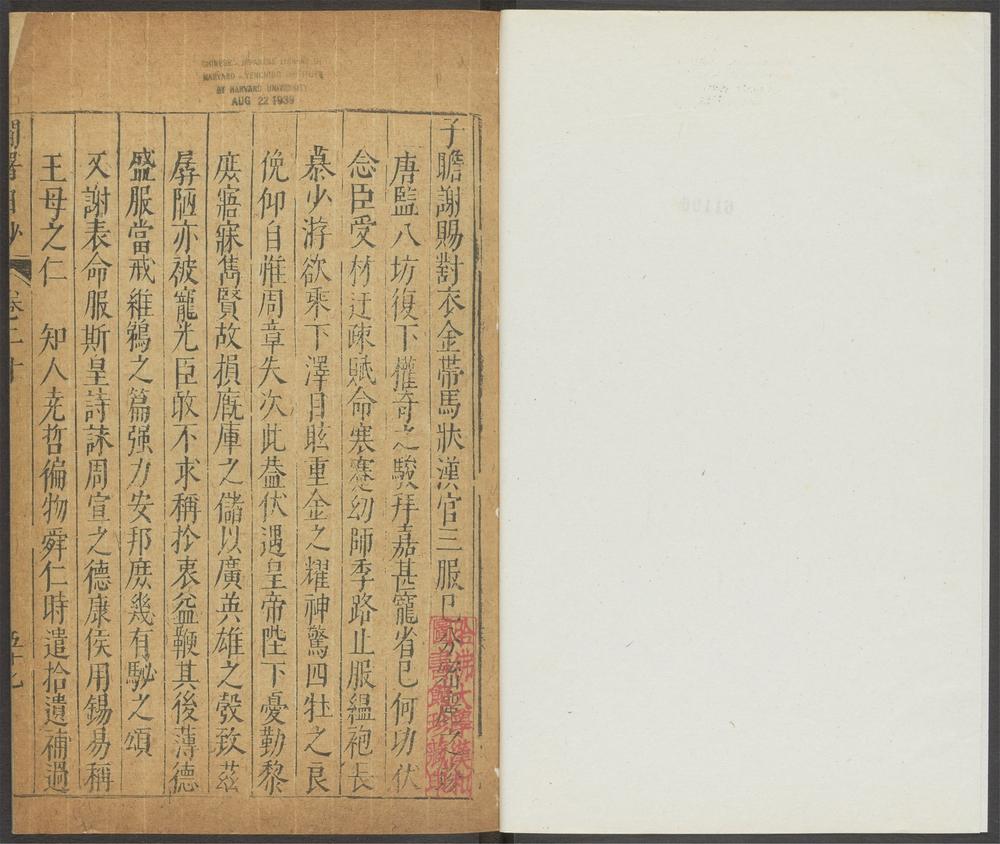 CHINESE - JAPANESE LIBRARY OF
HARVARD - YENCHING INSTITUTE
AT HARVARD UNIVERSITY
AUG 22 1939
子瞻謝賜對衣金帶馬狀漢官三服
唐監八坊復下權奇之駿拜嘉甚寵省已何功伏
念臣受材迂疎賦命寒蹇幼師季路止服緼袍長
慕少游欲乘下澤目眩重金之耀神驚四牡之良
俛仰自惟周章失次此葢伏遇皇帝陛下憂勤黎
庶寤寐雋賢故損廐庫之儲以廣英雄之彀致茲
孱陋亦被寵光臣敢不求稱於衷益鞭其後薄德
盛服當戒維鵜之篇强力安邦庶幾有駜之頌
又謝表命服斯皇詩誄周宣之德康侯用錫易稱
王母之仁 知人尭哲徧物舜仁時遣拾遺補過
卷二十
哈佛大學漢和圖書館珍藏印
61106